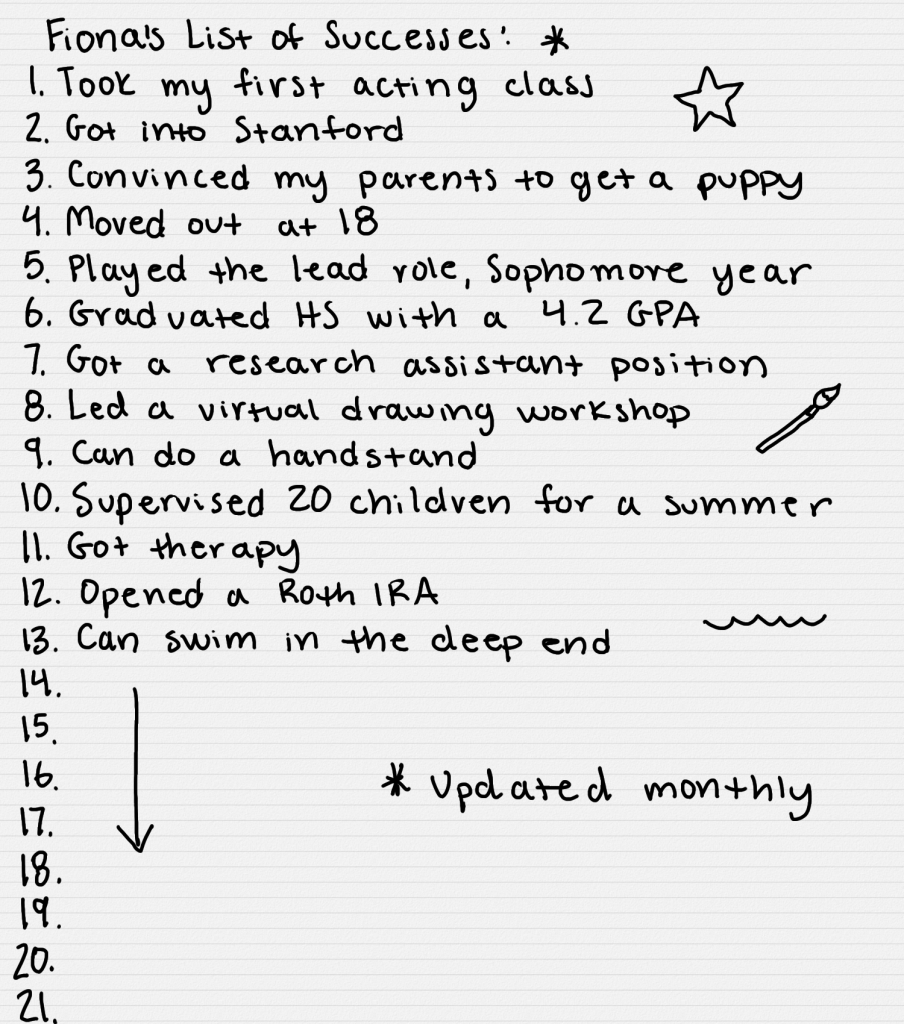 Fiona's List of Successes: *
1. Took my first acting class
2. Got into Stanford
3. Convinced my parents to get a puppy
4. Moved out at 18
5. Played the lead role, Sophomore year
6. Graduated HS with a 4.2 GPA
7. Got a research assistant position
8. Led a virtual drawing workshop
9. Can do a handstand
10. Supervised 20 children for a summer
11. Got therapy
12. Opened a Roth IRA
13. Can swim in the deep end
14.
15.
16.
* Updated monthly
17.
18.
19.
20.
21.